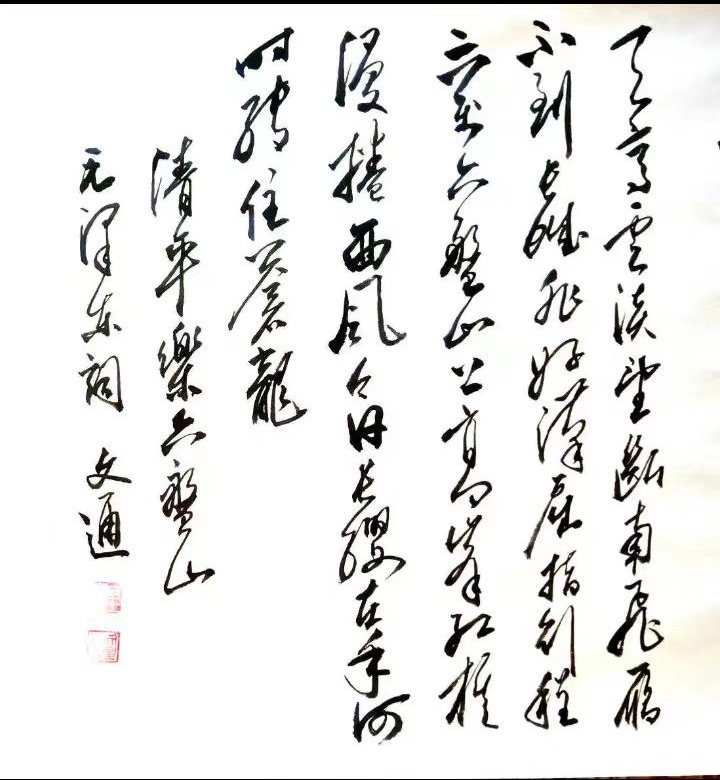 天高雲淡望斷南飛雁
不到長城非好漢屈指行程
二万六盤山上高峯紅旗
漫捲西風今日長纓在手何
時縛住蒼龍
清平樂六盤山
毛澤东詞 文通